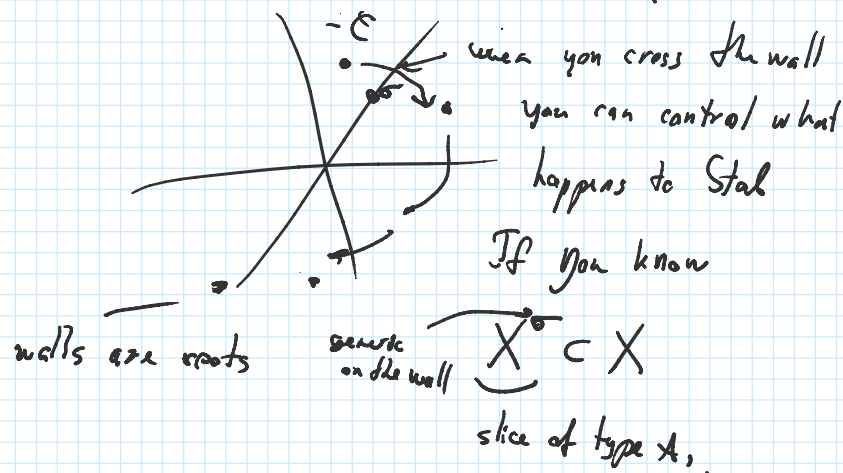 - C
when you cross the wall
σ
you can control what
happens to Stab
If you know
walls are roots
generic
on the wall
X^σ ⊂ X
slice of type A,